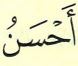 أَحْسَنُ